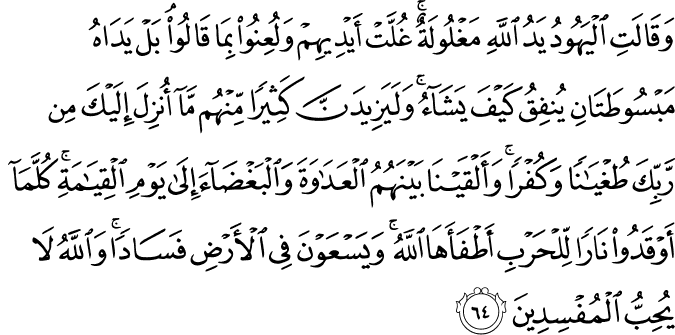 وَقَالَتِ ٱلۡيَهُودُ يَدُ ٱللَّهِ مَغۡلُولَةٌۚ غُلَّتۡ أَيۡدِيهِمۡ وَلُعِنُواْ بِمَا قَالُواْۘ بَلۡ يَدَاهُ
مَبۡسُوطَتَانِ يُنفِقُ كَيۡفَ يَشَآءُۚ وَلَيَزِيدَنَّ كَثِيرٗا مِّنۡهُم مَّآ أُنزِلَ إِلَيۡكَ مِن
رَّبِّكَ طُغۡيَٰنٗا وَكُفۡرٗاۚ وَأَلۡقَيۡنَا بَيۡنَهُمُ ٱلۡعَدَٰوَةَ وَٱلۡبَغۡضَآءَ إِلَىٰ يَوۡمِ ٱلۡقِيَٰمَةِۚ كُلَّمَآ
أَوۡقَدُواْ نَارٗا لِّلۡحَرۡبِ أَطۡفَأَهَا ٱللَّهُۚ وَيَسۡعَوۡنَ فِي ٱلۡأَرۡضِ فَسَادٗاۚ وَٱللَّهُ لَا
يُحِبُّ ٱلۡمُفۡسِدِينَ ٦٤